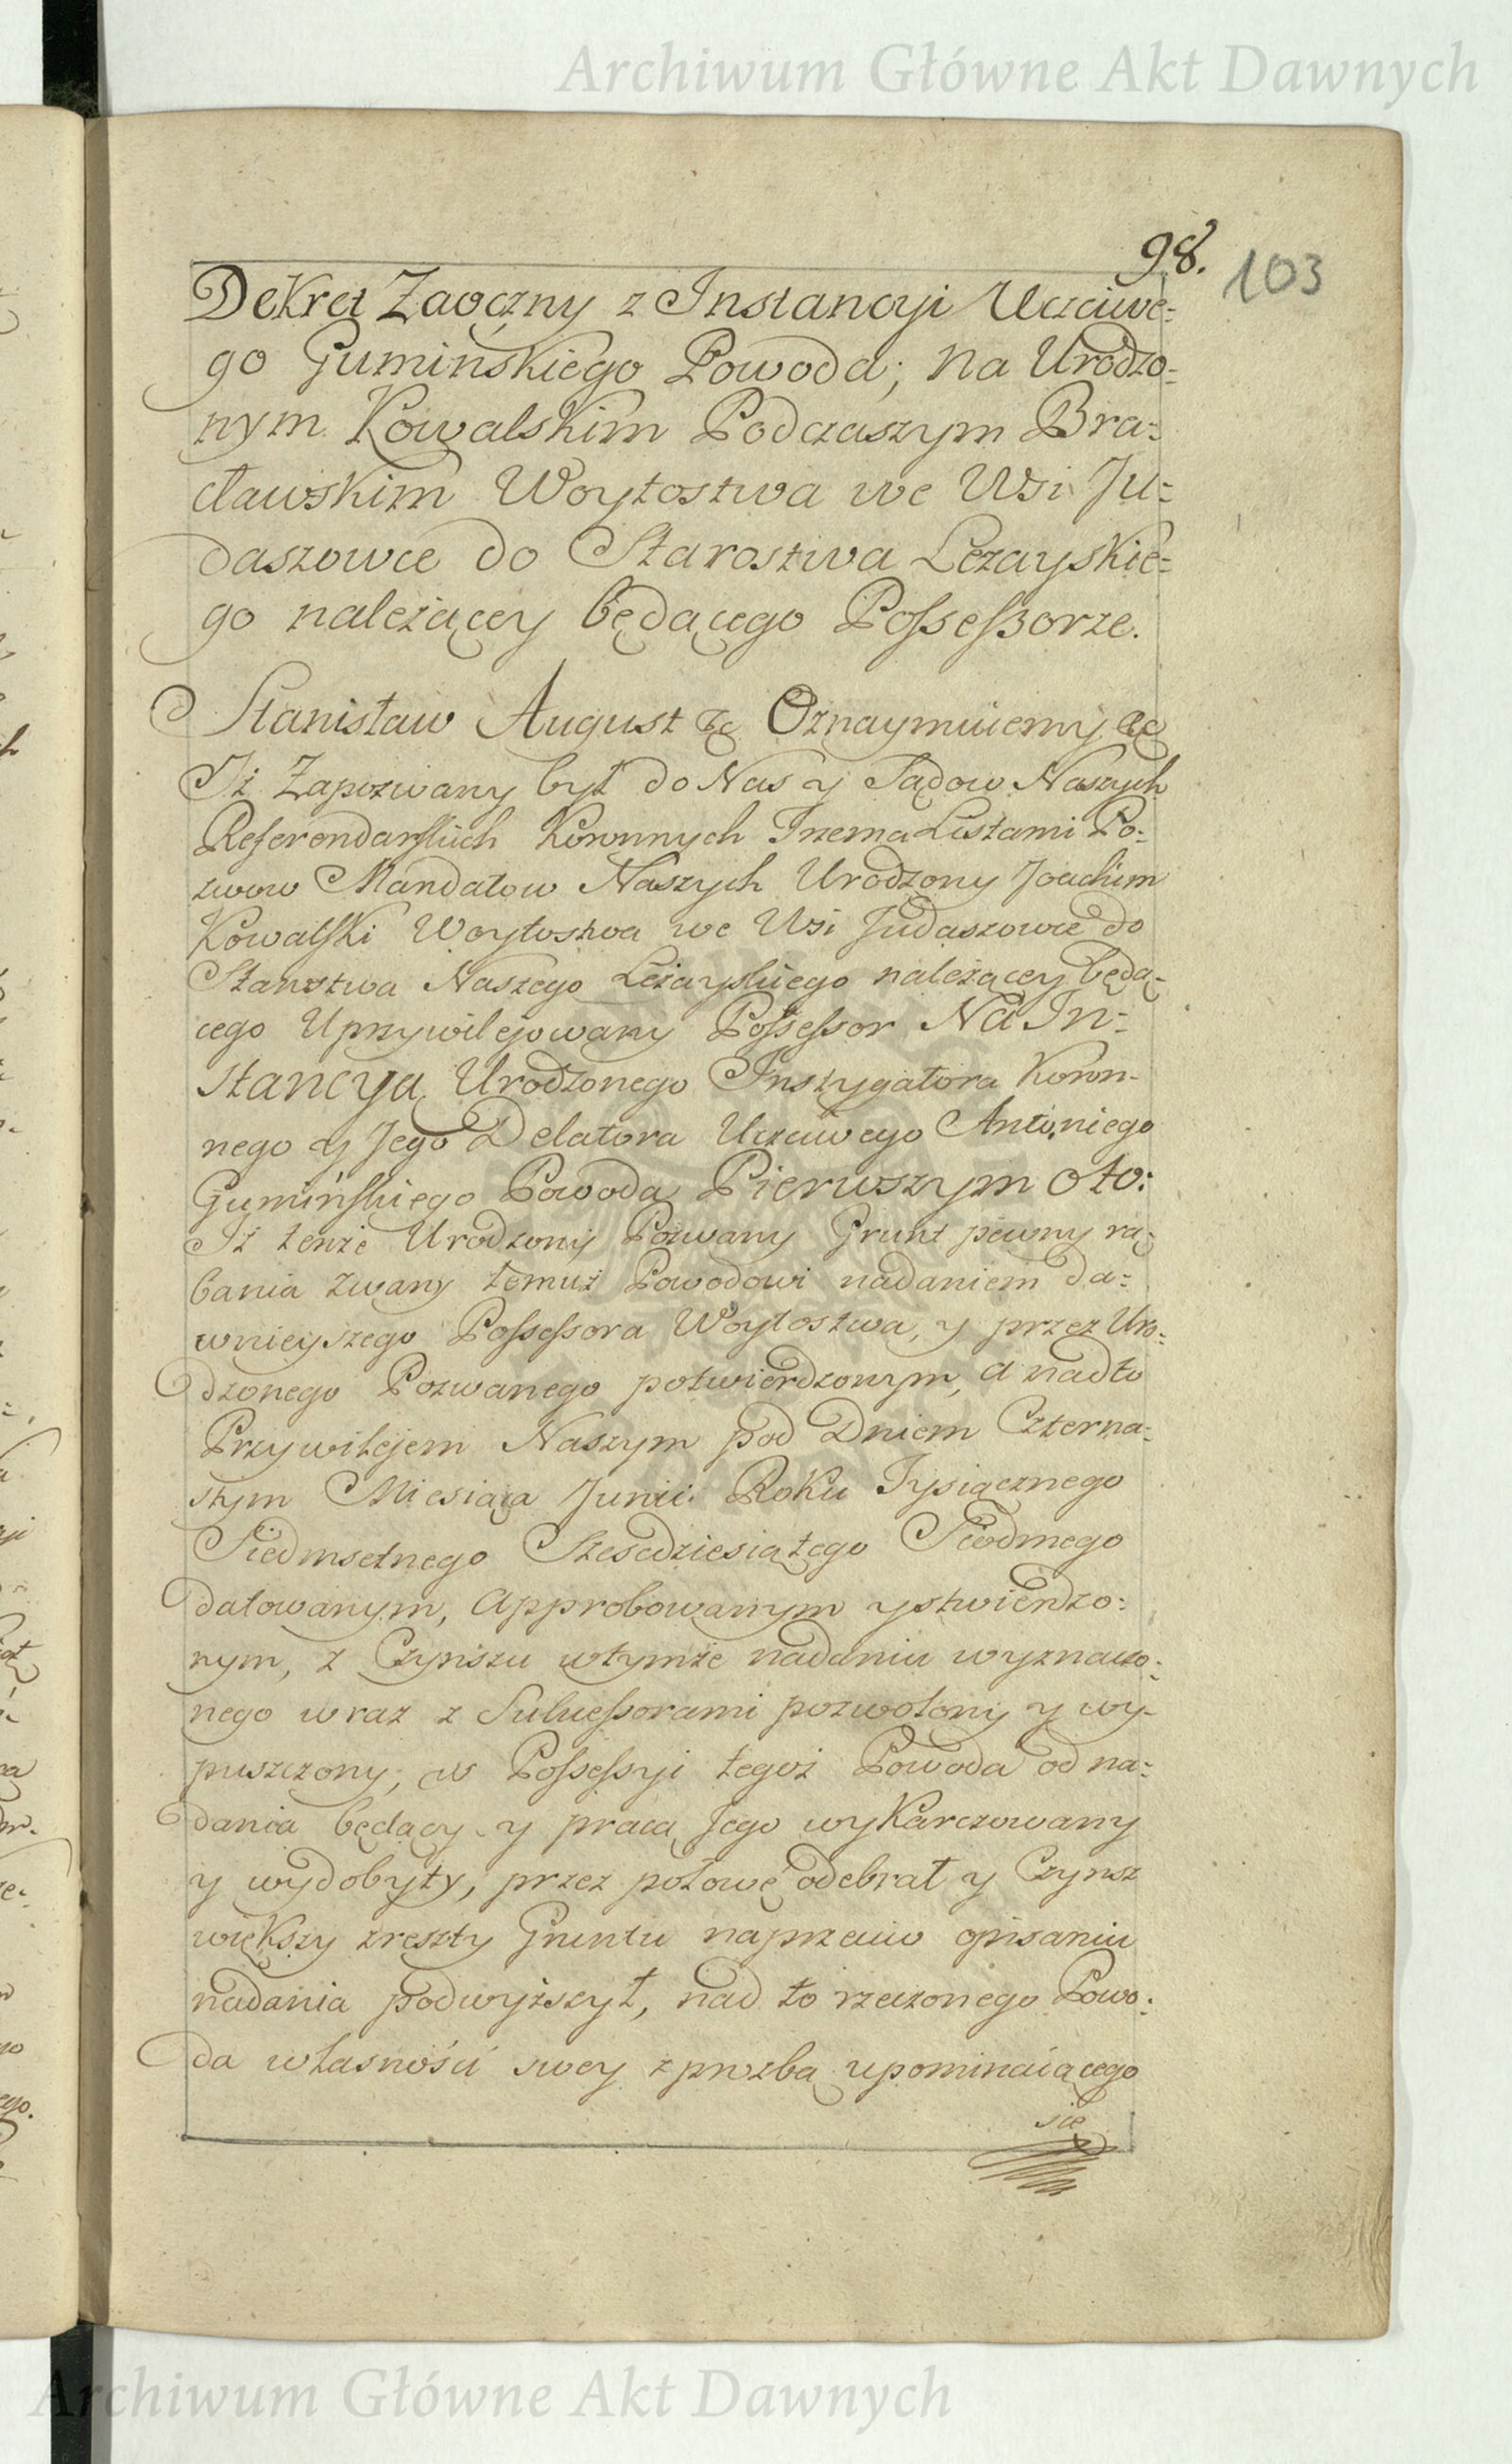 Archiwum Główne Akt Dawnych
98. 103
Dekret Zaoczny z Instancyi Uczciwe=
go Guminskiego Powoda; na Urodzo=
nym Kowalskim Podczaszym Bra=
cławskim Woytostwa we Wsi Ju=
daszowce do Starostwa Leżayskie=
go należącey będącego Possessorze.
Stanisław August &c Oznaymuiemy &c
Iż Zapozwany był do Nas y Sądow Naszych
Referendarskich Koronnych Trzema Listami Po=
zwow Mandatow Naszych Urodzony Joachim
Kowalski Woytostwa we Wsi Judaszowce do
Starostwa Naszego Leżayskiego należącey będą=
cego Uprzywilejowany Possessor Na In=
stancyą Urodzonego Instygatora Koron=
nego y Jego Delatora Uczciwego Antoniego
Gumińskiego Powoda Pierwszym oto:
Iż tenże Urodzony Pozwany Grunt pewny ra=
bania zwany temuż Powodowi nadaniem da=
wnieyszego Possessora Woytostwa, y przez Uro=
dzonego Pozwanego potwierdzonym, a nadto
Przywilejem Naszym pod Dniem Czterna=
stym Miesiąca Junii Roku Tysiącznego
Siedmsetnego Szescdziesiątego Siodmego
datowanym, approbowanym ystwierdzo=
nym, z Czynszu wtymże nadaniu wyznaczo=
nego wraz z Sukcessorami pozwolony y wy=
puszczony, w Possessyi tegoż Powoda od na=
dania będący y pracą Jego wykarczowany
y wydobyty, przez połowę odebrał y Czynsz
większy zreszty Gruntu naprzeciw opisaniu
nadania podwyższył, nad to rzeczonego Powo=
da własności swey z prozbą upominaiącego
się
Archiwum Główne Akt Dawnych